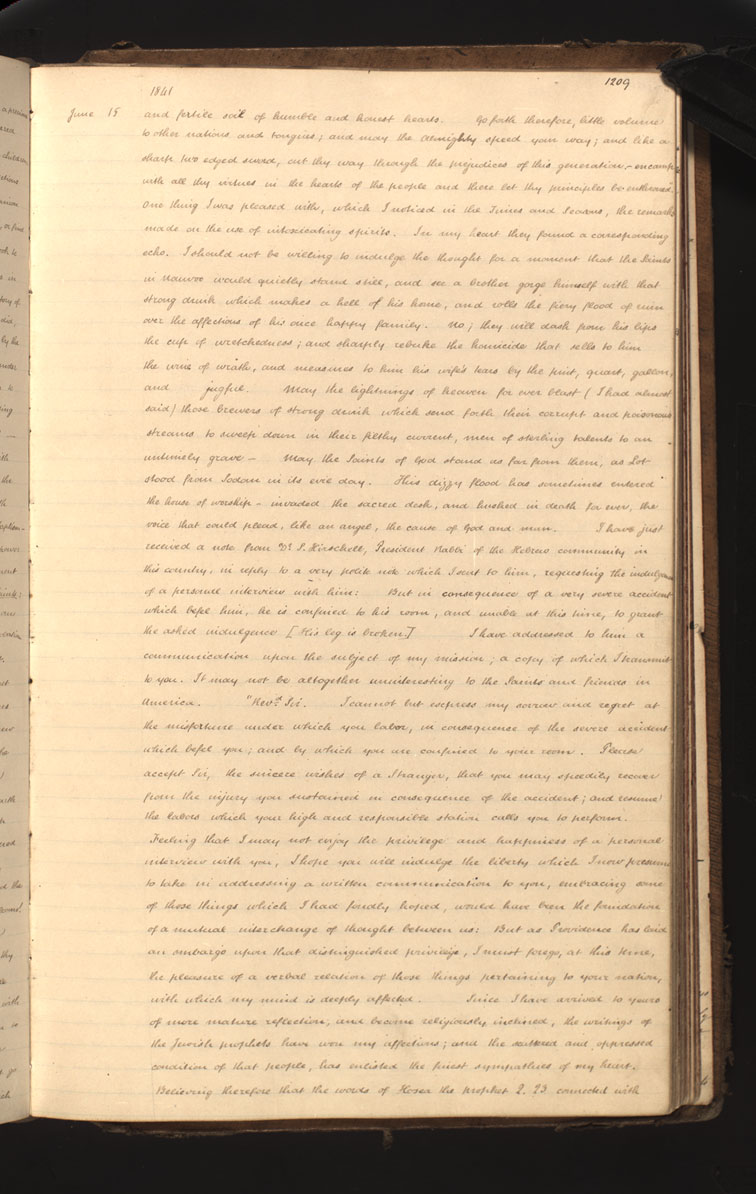 1209
1841
June 15 and fertile soil of humble and honest hearts. Go forth therefore, little volume
to other nations and tongues; and may the almighty speed your way; and like a
sharp two edged sword, cut thy way through the prejudices of this generation,- encamp
with all thy virtues in the hearts of the people and there let thy principles be enthroned.
One thing I was pleased with, which I noticed in the Times and Seasons, the remarks
made on the use of intoxicating spirits. In my heart they found a corresponding
echo. I should not be willing to indulge the thought for a moment that the Saints
in Nauvoo would quietly stand still, and see a brother gorge himself with that
strong drink which makes a hell of his home, and rolls the fiery flood of ruin
over the affections of his once happy family. No; they will dash from his lips
the cup of wretchedness; and sharply rebuke the homicide that sells to him
the wine of wrath, and measures to him his wife's tears by the pint, quart, gallon,
and jugful. May the lightnings of heaven for ever blast (I had almost
said) those brewers of strong drink which send forth their corrupt and poisonous
streams to sweep down in their filthy current, men of sterling talents to an
untimely grave - May the Saints of God stand as far from them, as Lot
stood from Sodom in its evil day. This dizzy flood has sometimes entered
the house of worship - invaded the sacred desk, and hushed in death for ever, the
voice that could plead, like an angel, the cause of God and man. I have just
received a note from Dr. S. Hirschell, President Rabbi of the Hebrew community in
this country, in reply to a very polite note which I sent to him, requesting the indulgence
of a personal interview with him: But in consequence of a very severe accident
which befel him, he is confined to his room, and unable at this time, to grant
the asked indulgence [His leg is broken.] I have addressed to him a
communication upon the subject of my mission; a copy of which I transmit
to you. It may not be altogether uninteresting to the Saints and friends in
America. "Revd. Sir. I cannot but express my sorrow and regret at
the misfortune under which you labor, in consequence of the severe accident
which befel you; and by which you are confined to your room. Please
accept Sir, the sincere wishes of a Stranger, that you may speedily recover
from the injury you sustained in consequence of the accident; and resume
the labors which your high and responsible station calls you to perform.
Feeling that I may not enjoy the privilege and happiness of a personal
interview with you, I hope you will indulge the liberty which I now presume
to take in addressing a written communication to you, embracing some
of those things which I had fondly hoped, would have been the foundation
of a mutual interchange of thought between us: But as Providence has laid
an embargo upon that distinguished privilege, I must forego, at this time,
the pleasure of a verbal relation of those things pertaining to your nation,
with which my mind is deeply affected. Since I have arrived to years
of more mature reflection, and become religiously inclined, the writings of
the Jewish prophets have won my affections; and the scattered and oppressed
condition of that people, has enlisted the finest sympathies of my heart.
Believing therefore that the words of Hosea the prophet 2. 23 connected with